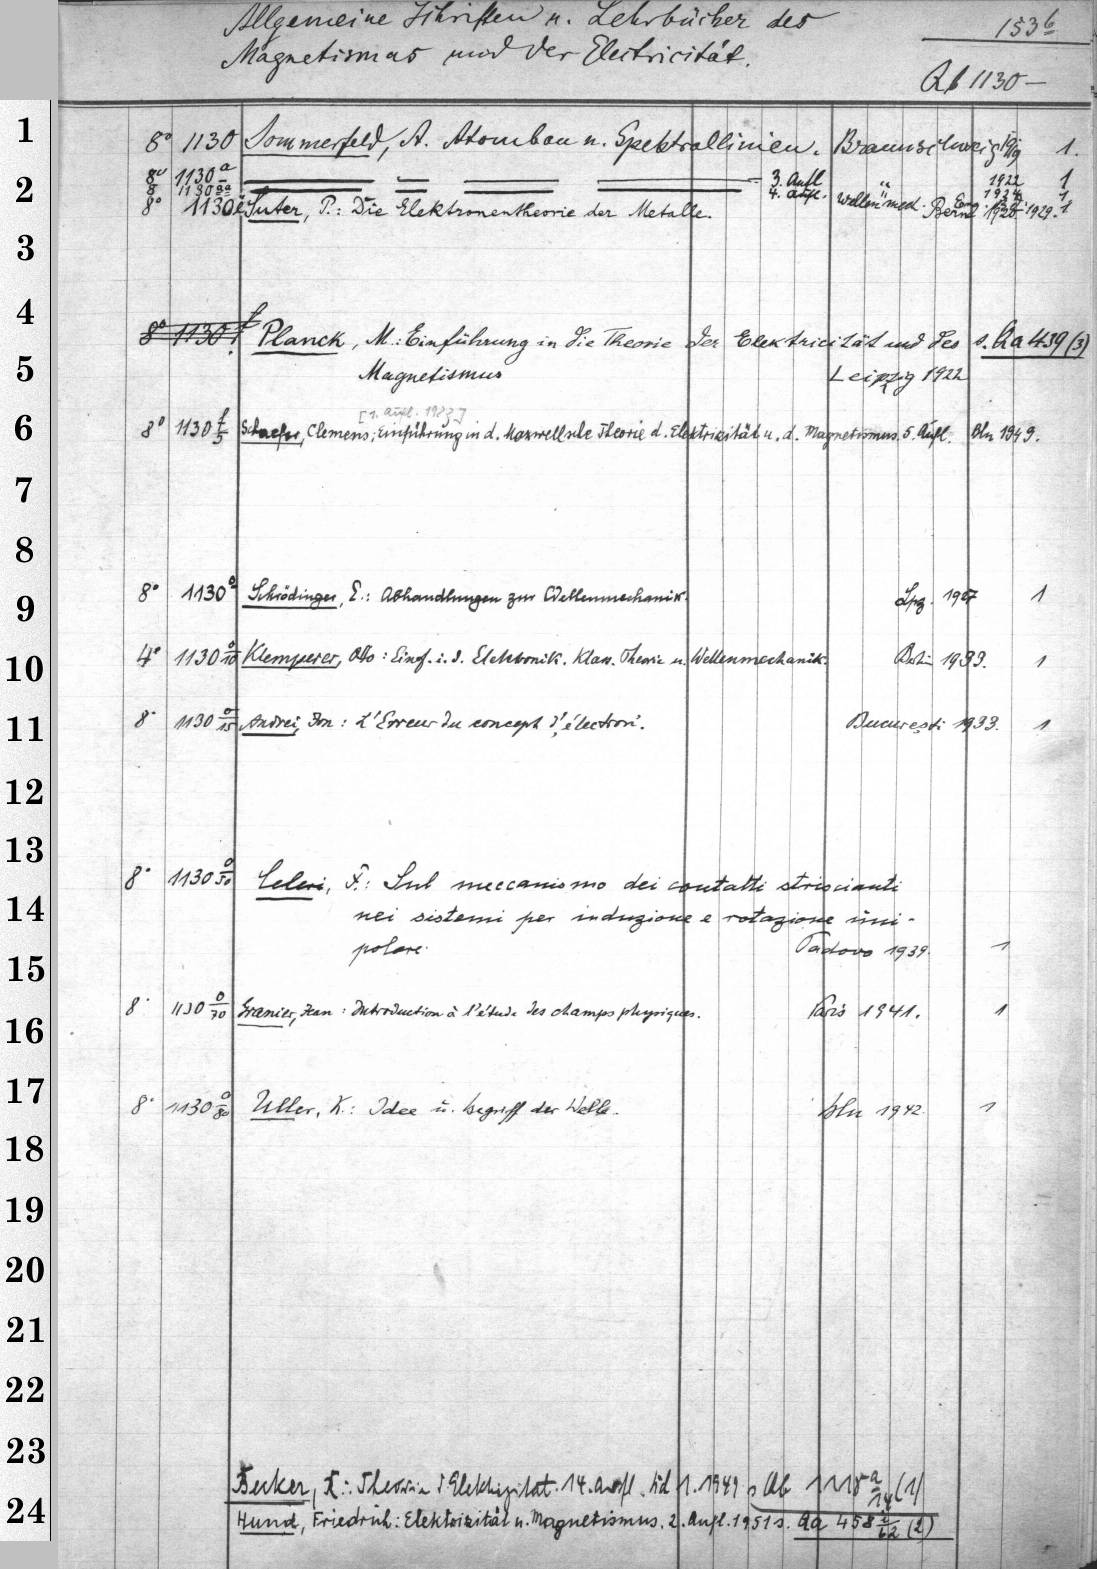 Allgemeine Schriften u. Lehrbücher des
153b
Magnetismus und der Electricität.
Qb 1130 —
1
8° 1130 Sommerfeld, A. Atombau u. Spektrallinien. Braunschweig 1919 1.
8° 1130 a 3. Aufl. " 1922 1
2
8° 1130 aa 4. Aufl. " 1924 1
Wellenmech. Erg. 1929. 1
8° 1130 Suter, P.: Die Elektronentheorie der Metalle. Bern 1920
3
4
8° 1130 f Planck, M.: Einführung in die Theorie der Elektricität und des s. Qa 439 (3)
5
Magnetismus Leipzig 1922
[1. Aufl. 1922]
6
8° 1130 f/5 Schaefer, Clemens; Einführung in d. Maxwellsche Theorie d. Elektrizität u. d. Magnetismus. 5. Aufl. Bln 1949.
7
8
9
8° 1130 o Schrödinger, E.: Abhandlungen zur Wellenmechanik. Lpz. 1927 1
10
4° 1130 o/10 Klemperer, Otto: Einf. i. d. Elektronik. Klass. Theorie u. Wellenmechanik. Berlin 1933. 1
11
8° 1130 o/15 Andrei, Ion: L'Erreur du concept d'électron. Bucureşti 1933. 1
12
13
8° 1130 o/50 Celeri, F.: Sul meccanismo dei contatti striscianti
14
nei sistemi per induzione e rotazione uni-
polare. Padova 1939. 1
15
8° 1130 o/70 Granier, Jean: Introduction à l'étude des champs physiques. Paris 1941. 1
16
17
8° 1130 o/80 Uller, K.: Idee u. Begriff der Welle. Bln 1942. 1
18
19
20
21
22
23
Becker, R.: Theorie d. Elektrizität. 14. Aufl. Bd 1. 1949 s Qb 1118 a/14 (1)
24
Hund, Friedrich: Elektrizität u. Magnetismus. 2. Aufl. 1951 s. Qa 458 i/62 (2)